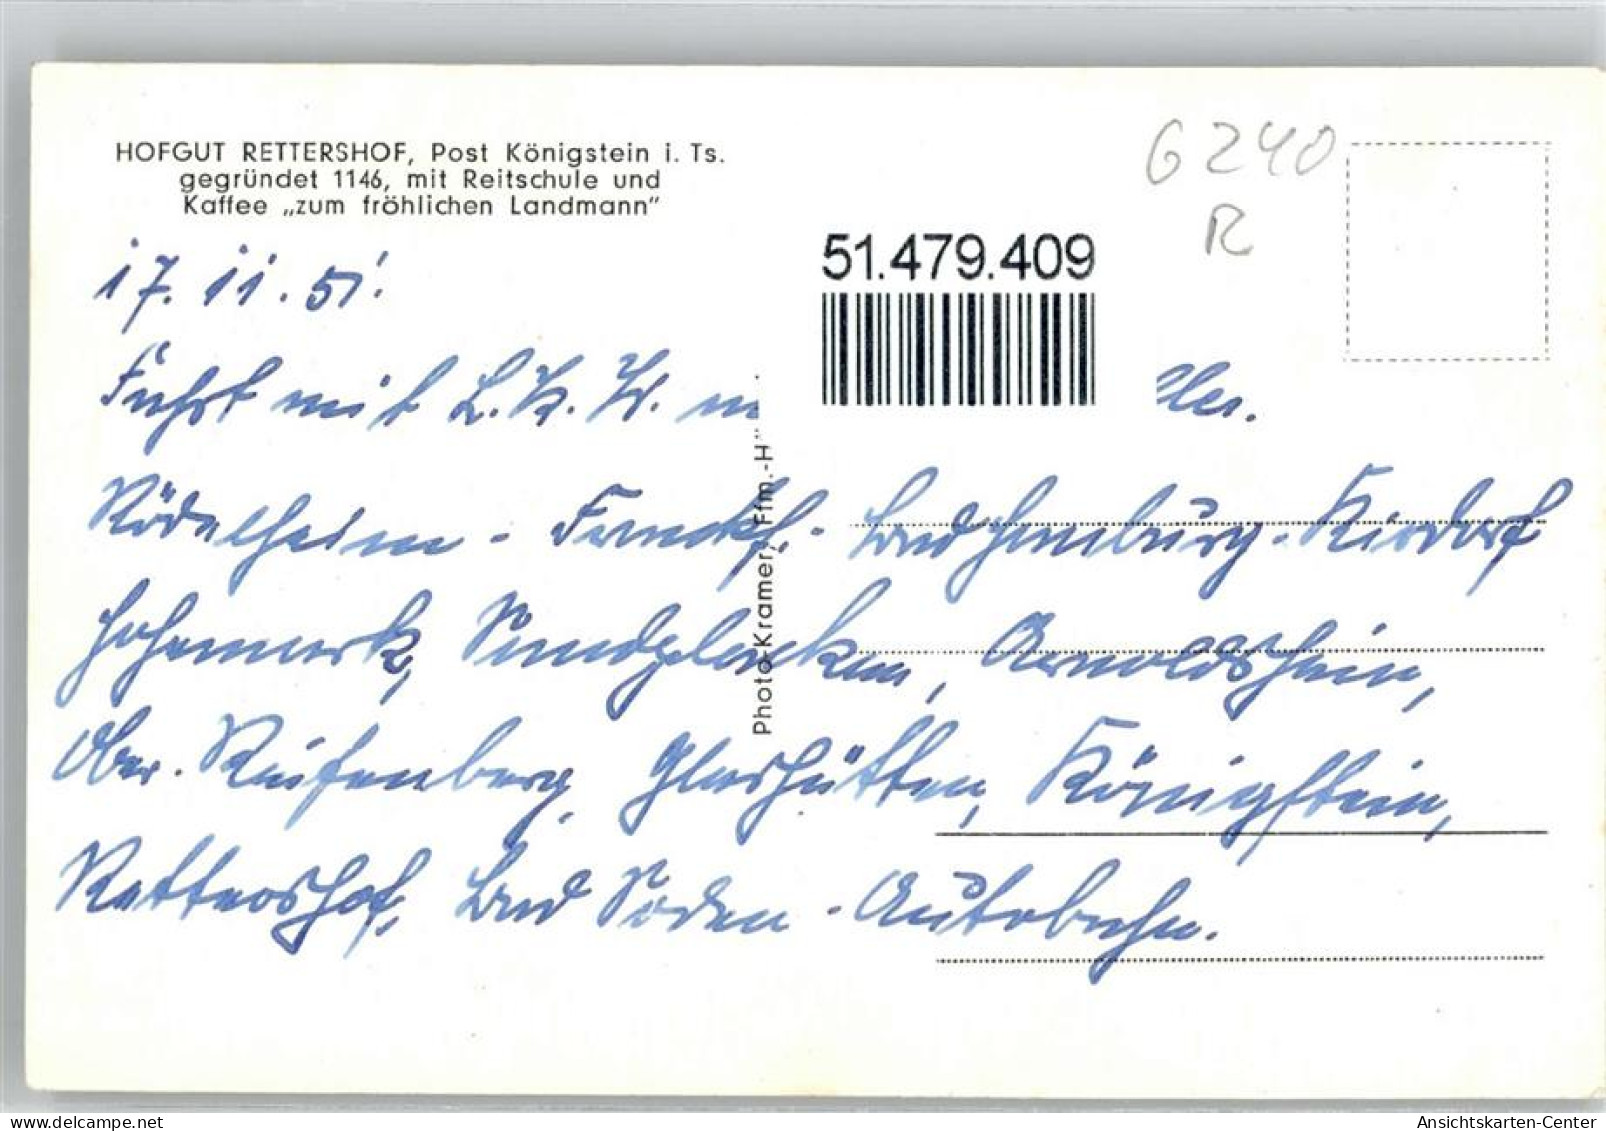 HOFGUT RETTERSHOF, Post Königstein i. Ts.
gegründet 1146, mit Reitschule und
Kaffee „zum fröhlichen Landmann"
6240
R
51.479.409
17. 11. 51.
Fahrt mit L.K.W.
Rödelheim - Frankf. - Bad Homburg - Kirdorf
Hohemark, Sandplacken, Arnoldshain,
Ober-Reifenberg, Glashütten, Königstein,
Rettershof, Bad Soden - Autobahn.
Photo-Kramer, Ffm.-H
Ansichtskarten-Center